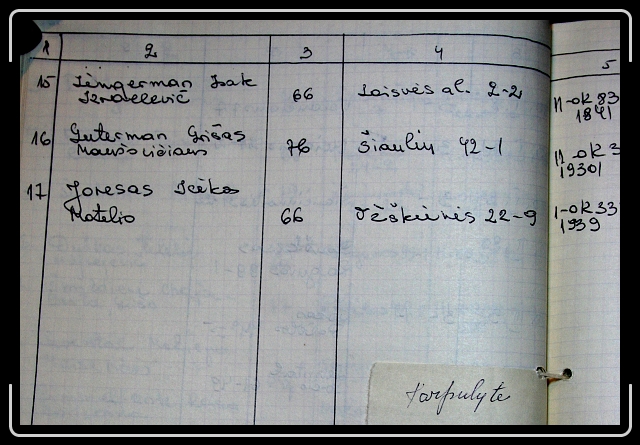 1 2 3 4 5
15 Izak 66 Laisvės al. 2-2 11-OK 83
Izraelevič 1841
16 Guterman Grišas 76 Šiaulių 42-1 11 OK 3
19301
17 Joresas Icikas
Motelio 66 22-9 1-OK 33
1939
Karpulytė